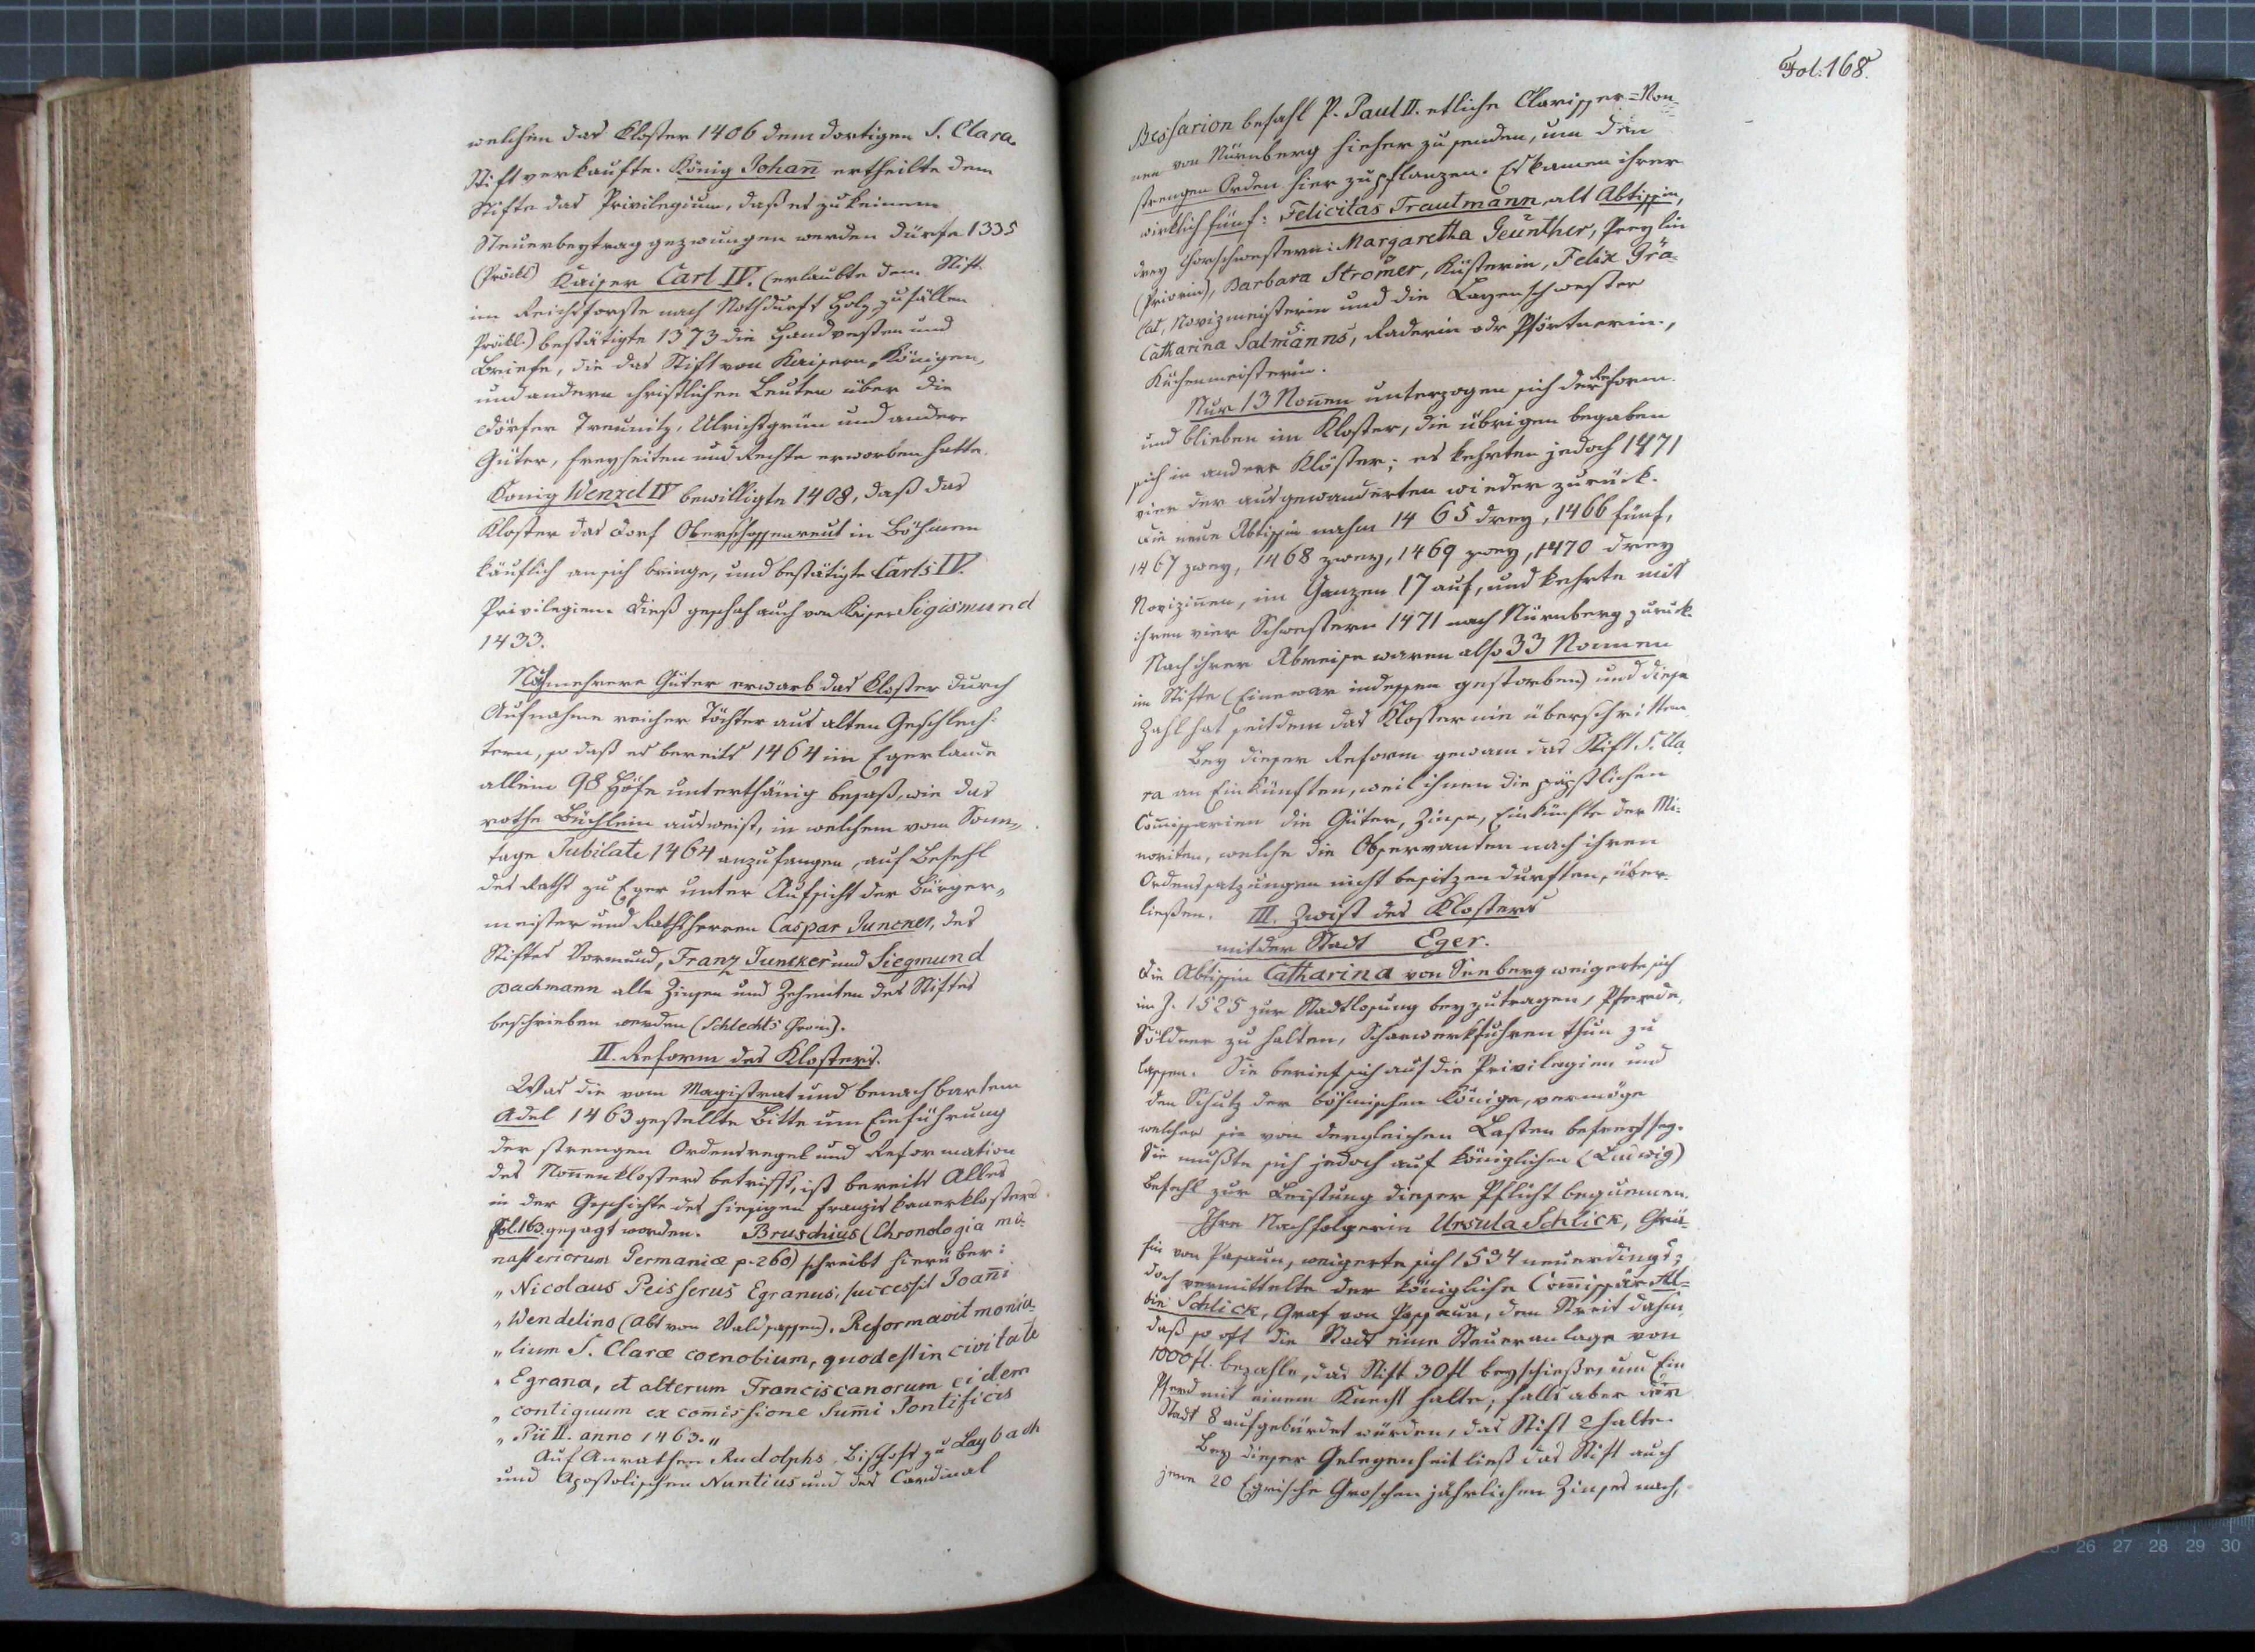 welchen das Kloster 1406 dem dortigen S. Clara
Stift verkaufte. König Johan̄ ertheilte dem
Stifte das Privilegium, daß es zu keinem
Steuerbeytrag gezwungen werden dürfe 1335
(Pröckl) Kaiser Carl IV. (erlaubte dem Stift
im Reichsforste nach Nothdurft Holz zu fällen
Pröckl.) bestätigte 1373 die Handvesten und
Briefe, die das Stift von Kaisern, Königen,
und andern christlichen Leuten über die
Dörfer Treunitz, Ulrichsgrün und andere
Güter, Freyheiten und Rechte erworben hatte.
König Wenzel IV bewilligte 1408, daß das
Kloster das Dorf Oberschossenreut in Böhmen
käuflich an sich bringe, und bestätigte Carls IV.
Privilegien. Dieß geschah auch von Kaiser Sigismund
1433.
Noch mehrere Güter erwarb das Kloster durch
Aufnahme reicher Töchter aus alten Geschlech-
tern, so daß es bereits 1464 im Egerlande
allein 98 Höfe unterthänig besaß, wie das
rothe Büchlein ausweist, in welchem vom Sonn„
tage Jubilate 1464 anzufangen, auf Befehl
des Raths zu Eger unter Aufsicht der Bürger„
meister und Rathsherren Caspar Juncker, des
Stiftes Vormund, Franz Juncker und Siegmund
Bachmann alle Zinsen und Zehenten des Stiftes
beschrieben werden (Schlechts Chron).
II. Reform des Klosters.
Was die vom Magistrat und benachbartem
Adel 1463 gestellte Bitte um Einführung
der strengen Ordensregel und Reformation
des Non̄enklosters betrifft, ist bereits Alles
in der Geschichte des hiesigen Franziskanerklosters
fol. 163 gesagt worden. Bruschius (Chronologia mo-
nasteriorum Germaniæ p. 260) schreibt hierüber:
„Nicolaus Peisserus Egranus, successit Joan̄i
„Wendelino (Abt von Waldsassen). Reformavit monia-
„lium S. Claræ coenobium, quod est in civitate
„Egrana, et alterum Franciscanorum eidem
„contiguum ex com̄issione Sum̄i Pontificis
„Pii II. anno 1463.„
Auf Anrathen Rudolphs, Bischofs zu Laybach
und Apostolischen Nuntius und des Cardinal
Fol: 168.
Bessarion befahl P. Paul II. etliche Clarisser=Non-
nen von Nürnberg hieher zu senden, um den
strengen Orden hier zu pflanzen. Es kamen ihrer
wirklich fünf: Felicitas Trautmann, als Abtissin,
drey Chorschwestern: Margaretha Geünther, Preylin
(Priorin), Barbara Stromer, Küsterin, Felix Grä-
Cat, Novizmeisterin und die Layenschwester
Catharina Salmanns, Raderin odr Pförtnerin,
Küchenmeisterin.
Nur 13 Non̄en unterzogen sich der Reform
und blieben im Kloster, die übrigen begaben
sich in andere Klöster; es kehrten jedoch 1471
vier der ausgewanderten wieder zurück.
Die neue Abtissin nahm 1465 drey, 1466 fünf,
1467 zwey, 1468 zwey, 1469 zwey, 1470 drey
Novizin̄en, im Ganzen 17 auf, und kehrte mit
ihren vier Schwestern 1471 nach Nürnberg zurück.
Nach ihrer Abreise waren also 33 Nonnen
im Stifte (Eine war indessen gestorben) und diese
Zahl hat seitdem das Kloster nie überschritten.
Bey dieser Reform gewann das Stift S. Cla-
ra an Einkünften, weil ihnen die päpstlichen
Com̄issarien die Güter, Zinse, Einkünfte der Mi-
noriten, welche die Observanten nach ihren
Ordenssatzungen nicht besitzen durften, über-
ließen. III. Zwist des Klosters
mit der Stadt Eger.
Die Abtissin Catharina von Seeberg weigerte sich
im J. 1525 zur Stadtlosung beyzutragen, Pferde,
Söldner zu halten, Scharwerksfuhren thun zu
lassen. Sie berief sich auf die Privilegien und
den Schutz der böhmischen Könige, vermöge
welcher sie von dergleichen Lasten befreyt sey.
Sie mußte sich jedoch auf königlichen (Ludwig)
Befehl zur Leistung dieser Pflicht bequemen.
Ihre Nachfolgerin Ursula Schlick, Grä-
fin von Passaun, weigerte sich 1534 neuerdings;
doch vermittelte der königliche Com̄issär Al-
bin Schlick, Graf von Passaun, den Streit dahin,
daß so oft die Stadt eine Steueranlage von
1000 fl. bezahle, das Stift 30 fl beyschieße, und Ein
Pferd mit einem Knecht halte; falls aber der
Stadt 8 aufgebürdet würden, das Stift 2 halte.
Bey dieser Gelegenheit ließ das Stift auch
jene 20 Egrische Groschen jährlichen Zinses nach,